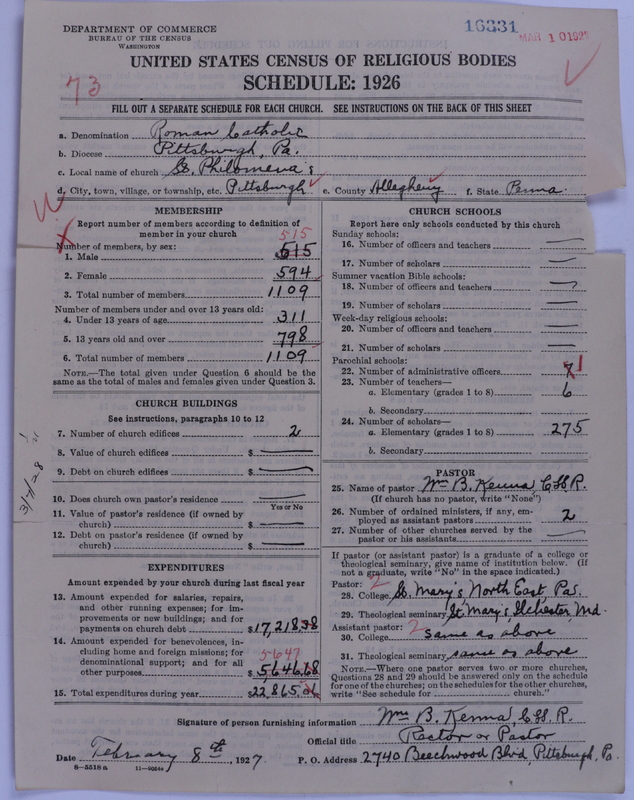 DEPARTMENT OF COMMERCE
BUREAU OF THE CENSUS
WASHINGTON
16331
MAR 10 192
UNITED STATES CENSUS OF RELIGIOUS BODIES
SCHEDULE: 1926
73
FILL OUT A SEPARATE SCHEDULE FOR EACH CHURCH. SEE INSTRUCTIONS ON THE BACK OF THIS SHEET
a. Denomination Roman Catholic
b. Diocese Pittsburgh, Pa.
c. Local name of church St. Philomena's
d. City, town, village, or township, etc. Pittsburgh e. County Allegheny f. State Penna.
MEMBERSHIP
Report number of members according to definition of
member in your church
515
Number of members, by sex:
1. Male 515
2. Female 594
3. Total number of members 1109
Number of members under and over 13 years old:
4. Under 13 years of age 311
5. 13 years old and over 798
6. Total number of members 1109
NOTE.—The total given under Question 6 should be
same as the total of males and females given under Question 3.
CHURCH BUILDINGS
See instructions, paragraphs 10 to 12
7. Number of church edifices 2
8. Value of church edifices $ —
9. Debt on church edifices $ —
10. Does church own pastor's residence —
Yes or No
11. Value of pastor's residence (if owned by
church) $ —
12. Debt on pastor's residence (if owned by
church) $ —
3/7/28
EXPENDITURES
Amount expended by your church during last fiscal year
13. Amount expended for salaries, repairs,
and other running expenses; for im-
provements or new buildings; and for
payments on church debt $17,218.38
14. Amount expended for benevolences, in-
cluding home and foreign missions; for
denominational support; and for all
5647
other purposes $5,646.68
15. Total expenditures during year $22,865.06
CHURCH SCHOOLS
Report here only schools conducted by this church
Sunday schools:
16. Number of officers and teachers —
17. Number of scholars —
Summer vacation Bible schools:
18. Number of officers and teachers —
19. Number of scholars —
Week-day religious schools:
20. Number of officers and teachers —
21. Number of scholars —
Parochial schools:
22. Number of administrative officers 7 1
23. Number of teachers—
a. Elementary (grades 1 to 8) 6
b. Secondary
24. Number of scholars—
a. Elementary (grades 1 to 8) 275
b. Secondary
PASTOR
25. Name of pastor Wm B. Kenna, C.SS.R.
(If church has no pastor, write "None")
26. Number of ordained ministers, if any, em-
ployed as assistant pastors 2
27. Number of other churches served by the
pastor or his assistants —
If pastor (or assistant pastor) is a graduate of a college or
theological seminary, give name of institution below. (If
not a graduate, write "No" in the space indicated.)
Pastor: 2
28. College St. Mary's North East, Pa.
29. Theological seminary St Mary's Ilchester, Md.
Assistant pastor: 2
30. College same as above
31. Theological seminary same as above
NOTE.—Where one pastor serves two or more churches,
Questions 28 and 29 should be answered only on the schedule
for one of the churches; on the schedules for the other churches,
write "See schedule for church."
Signature of person furnishing information Wm B. Kenna, C.SS.R.
Official title Rector or Pastor
Date February 8th, 1927 P. O. Address 2740 Beechwood Blvd, Pittsburgh, Pa.
8—5518 a